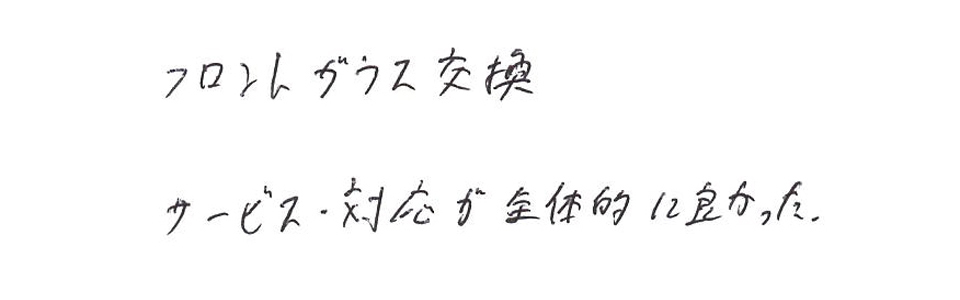 フロントガラス交換
サービス・対応が全体的に良かった.